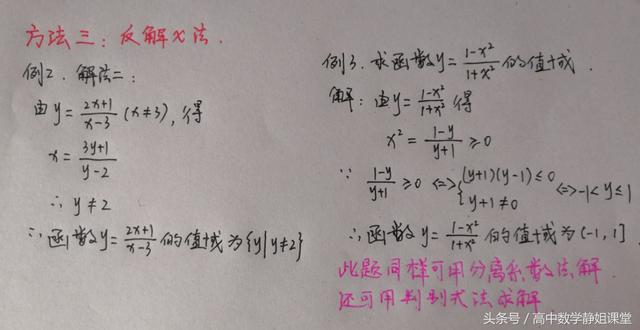 方法三：反解x法．
例2．解法二：
由y=\frac{2x+1}{x-3}(x≠3),得
x=\frac{3y+1}{y-2}
∴ y≠2
∴函数y=\frac{2x+1}{x-3}的值域为{y|y≠2}
例3．求函数y=\frac{1-x²}{1+x²}的值域．
解：由y=\frac{1-x²}{1+x²}得
x²=\frac{1-y}{y+1}≥0
∵ \frac{1-y}{y+1}≥0 <=> {(y+1)(y-1)≤0
y+1≠0 <=>-1<y≤1
∴函数y=\frac{1-x²}{1+x²}的值域为(-1,1]
此题同样可用分离系数法解
还可用判别式法求解
头条号／高中数学静姐课堂